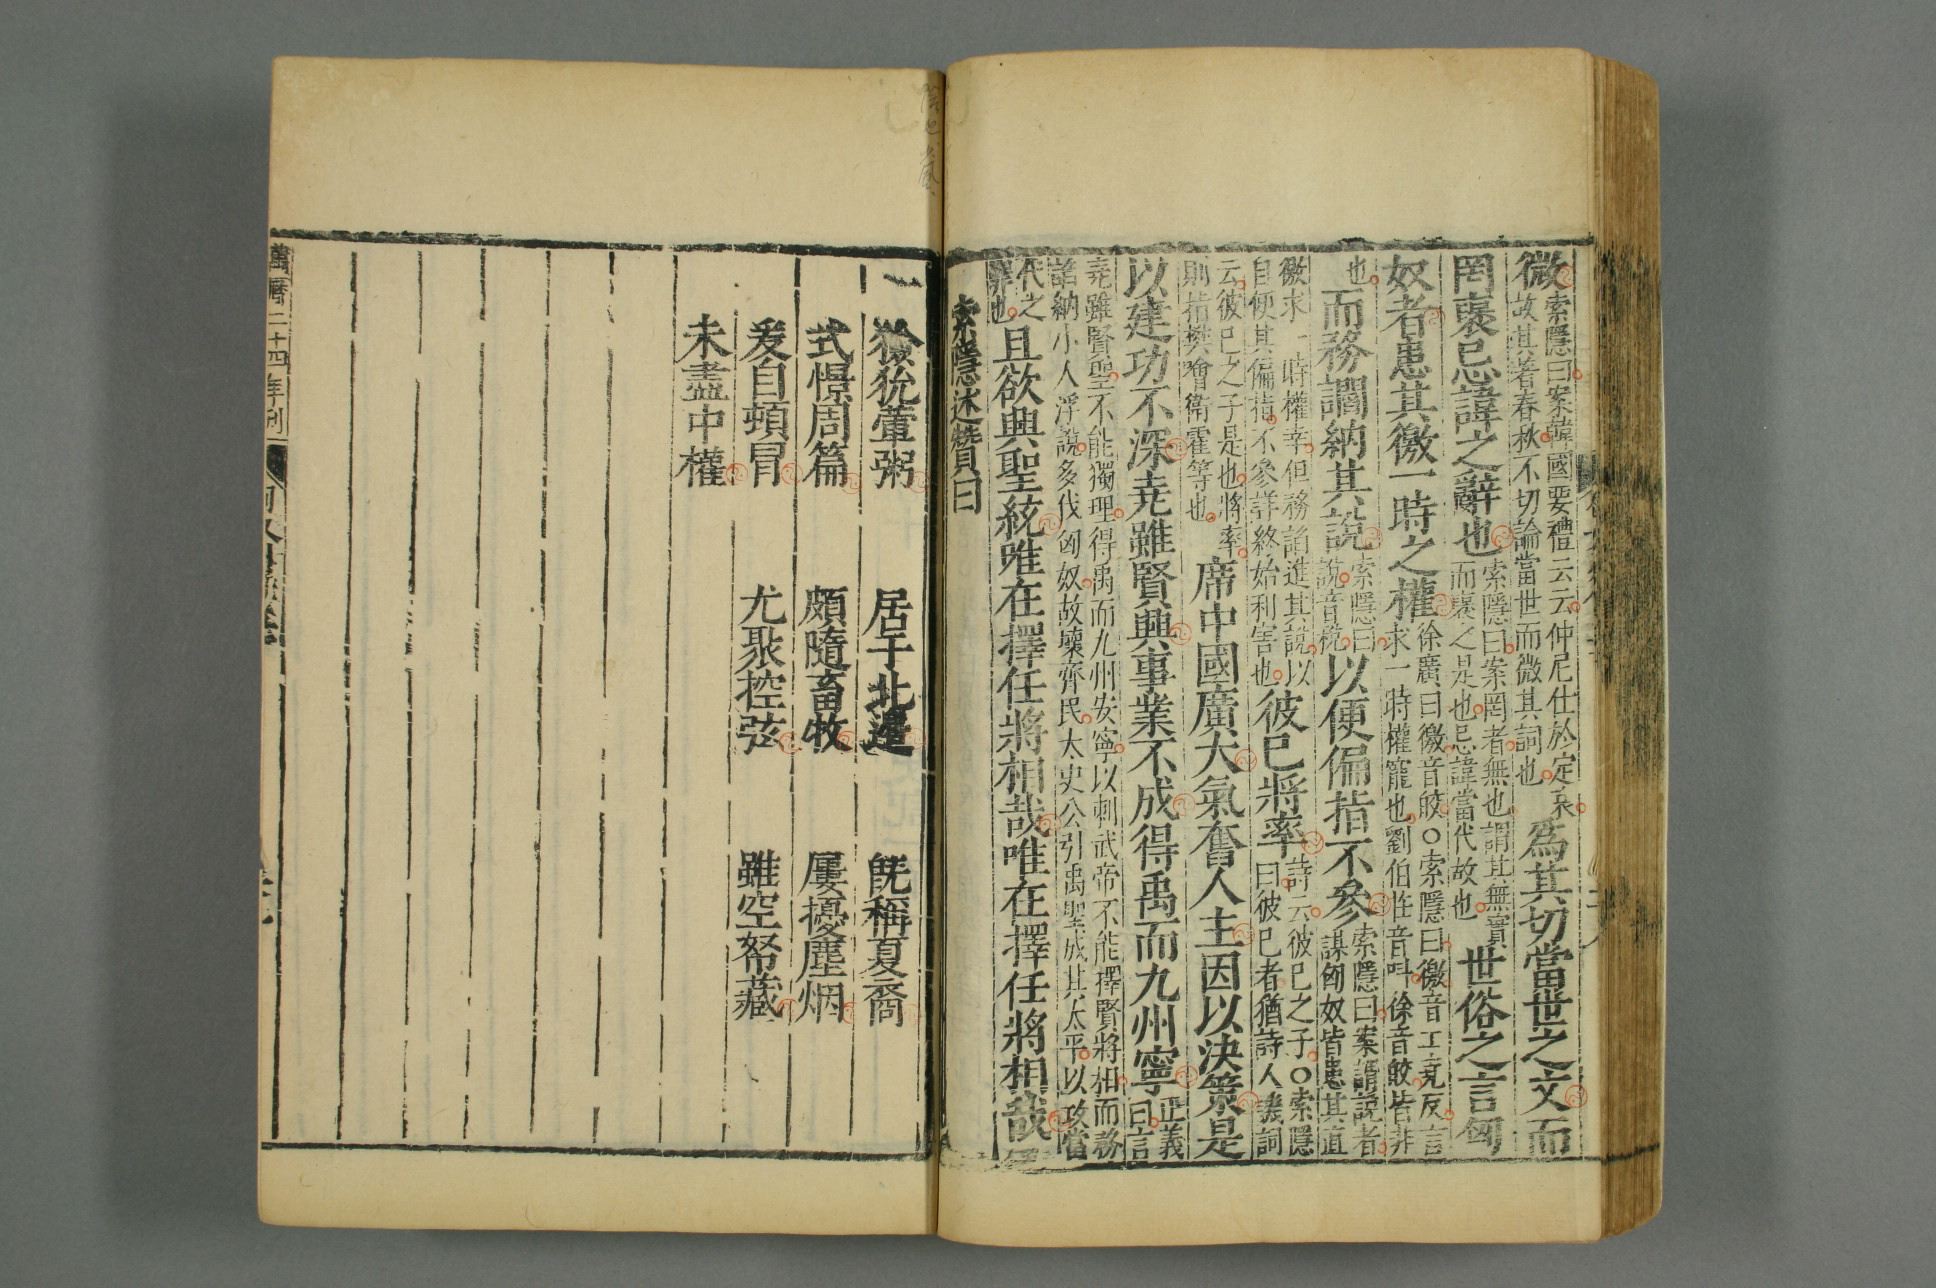 微索隱曰案韓國要禮云云仲尼仕於定哀故其著春秋不切論當世而微其詞也為其切當世之文而
罔襃忌諱之辭也索隱曰案罔者無也謂其無實而襃之是也忌諱當代故也世俗之言匈
奴者患其徼一時之權徐廣曰徼音皎○索隱曰徼音工堯反言求一時權寵也劉伯莊音叫徐音皎皆非
也而務讇納其說索隱曰說音稅以便偏指不參索隱曰案謂說者謀匈奴皆患其直
徼求一時權幸但務諂進其說以自便其偏指不參詳終始利害也彼已將率詩云彼已之子○索隱曰彼已者猶詩人譏詞
云彼已之子是也將率則指樊噲衛霍等也席中國廣大氣奮人主因以決策是
以建功不深堯雖賢興事業不成得禹而九州寧正義曰言
堯雖賢聖不能獨理得禹而九州安寧以刺武帝不能擇賢將相而務諂納小人浮說多伐匈奴故壞齊民太史公引禹聖成其太平以攻當
代之罪也且欲興聖統唯在擇任將相哉唯在擇任將相哉
索隱述贊曰
獫狁葷粥 居于北邊 旣稱夏裔
式憬周篇 頗隨畜牧 屢擾塵烟
爰自頓冒 尤聚控弦 雖空帑藏
未盡中權
萬曆二十四年刊